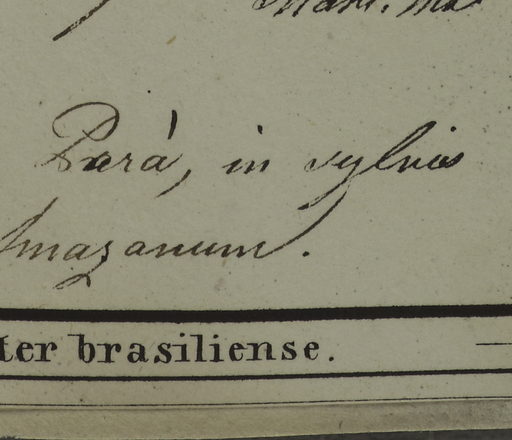 Mart. ms
Pará, in sylvis
Amazonum.
ter brasiliense.